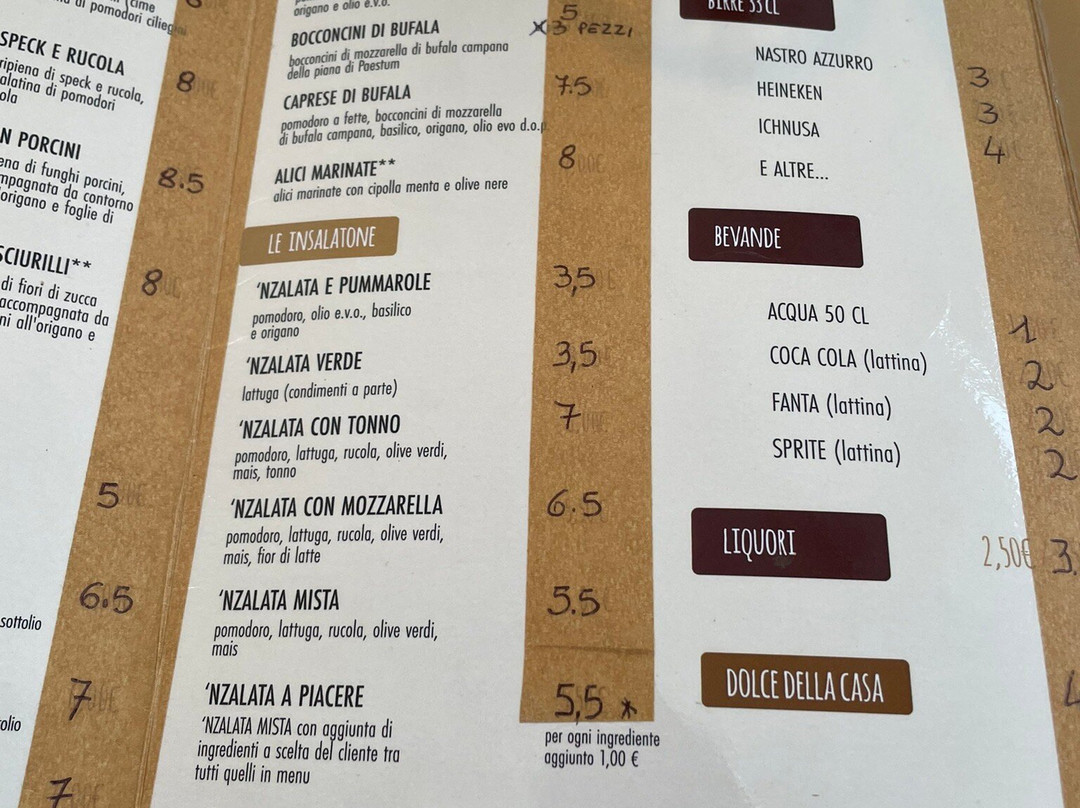 di pomodori ciliegini
SPECK E RUCOLA
ripiena di speck e rucola,
alatina di pomodori
ola
8
N PORCINI
ena di funghi porcini,
mpagnata da contorno
'origano e foglie di
8.5
SCIURILLI**
di fiori di zucca
accompagnata da
ni all'origano e
8
5
6.5
sottolio
7
7
origano e olio e.v.o.
5
BOCCONCINI DI BUFALA
x 3 PEZZI
bocconcini di mozzarella di bufala campana
della piana di Paestum
CAPRESE DI BUFALA
7.5
pomodoro a fette, bocconcini di mozzarella
di bufala campana, basilico, origano, olio evo d.o.p.
ALICI MARINATE**
8
alici marinate con cipolla menta e olive nere
LE INSALATONE
'NZALATA E PUMMAROLE
3,5
pomodoro, olio e.v.o., basilico
e origano
'NZALATA VERDE
3,5
lattuga (condimenti a parte)
'NZALATA CON TONNO
7
pomodoro, lattuga, rucola, olive verdi,
mais, tonno
'NZALATA CON MOZZARELLA
6.5
pomodoro, lattuga, rucola, olive verdi,
mais, fior di latte
'NZALATA MISTA
5.5
pomodoro, lattuga, rucola, olive verdi,
mais
'NZALATA A PIACERE
5,5 *
'NZALATA MISTA con aggiunta di
ingredienti a scelta del cliente tra
tutti quelli in menu
per ogni ingrediente
aggiunto 1,00 €
BIRRE 33 CL
NASTRO AZZURRO 3
HEINEKEN 3
ICHNUSA 4
E ALTRE...
BEVANDE
ACQUA 50 CL 1
COCA COLA (lattina) 2
FANTA (lattina) 2
SPRITE (lattina) 2
LIQUORI 2,50€ 3.
DOLCE DELLA CASA